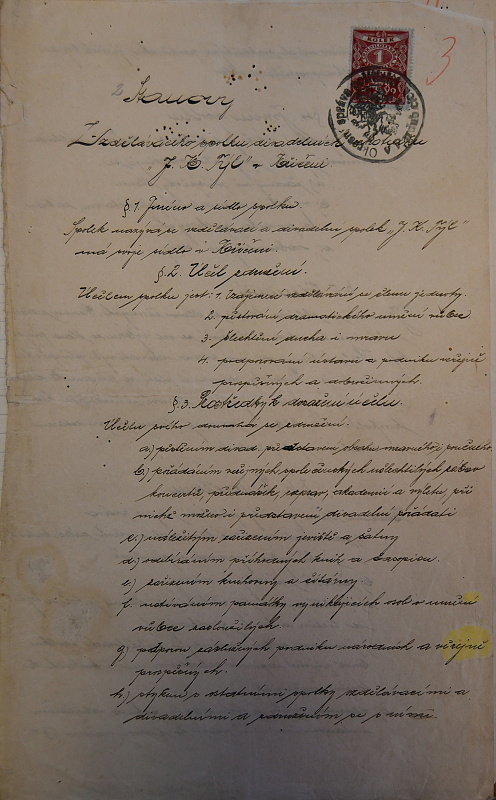 3
KOLEK
1
Stanovy
Vzdělávacího spolku divadelních ochotníků
"J. K. Tyl" v Říčení
§ 1. Jméno a sídlo spolku.
Spolek nazývá se vzdělávací a divadelní spolek „J. K. Tyl"
má svoje sídlo v
§ 2. Účel sdružení.
Účelem spolku jest: 1. Vzájemné vzdělávání se členů jednoty.
2. pěstování dramatického umění vůbec
3. šlechtění ducha i mravu
4. podporování ústavů a podniků veřejně
prospěšných a dobročinných.
§ 3. Prostředky k dosažení účelu.
Účelu svého domáhá se sdružení:
a) pěstěním divad. představení obsahu mravného i poučného
b.) pořádáním veřejných společenských ušlechtilých zábav
koncertů, přednášek, rozprav, akademií a výletů, při
nichž možno i představení divadelní pořádati
c.) náležitým zařízením jeviště a šatny
d.) odebíráním příhodných knih a časopisů
e) zařízením knihovny a čítárny
f. uctíváním památky vynikajících osob o umění
vůbec zasloužilých.
g) podporou záslužných podniků národních a veřejně
prospěšných.
h) stykem s ostatními spolky vzdělávacími a
divadelními a sdružením se s nimi.